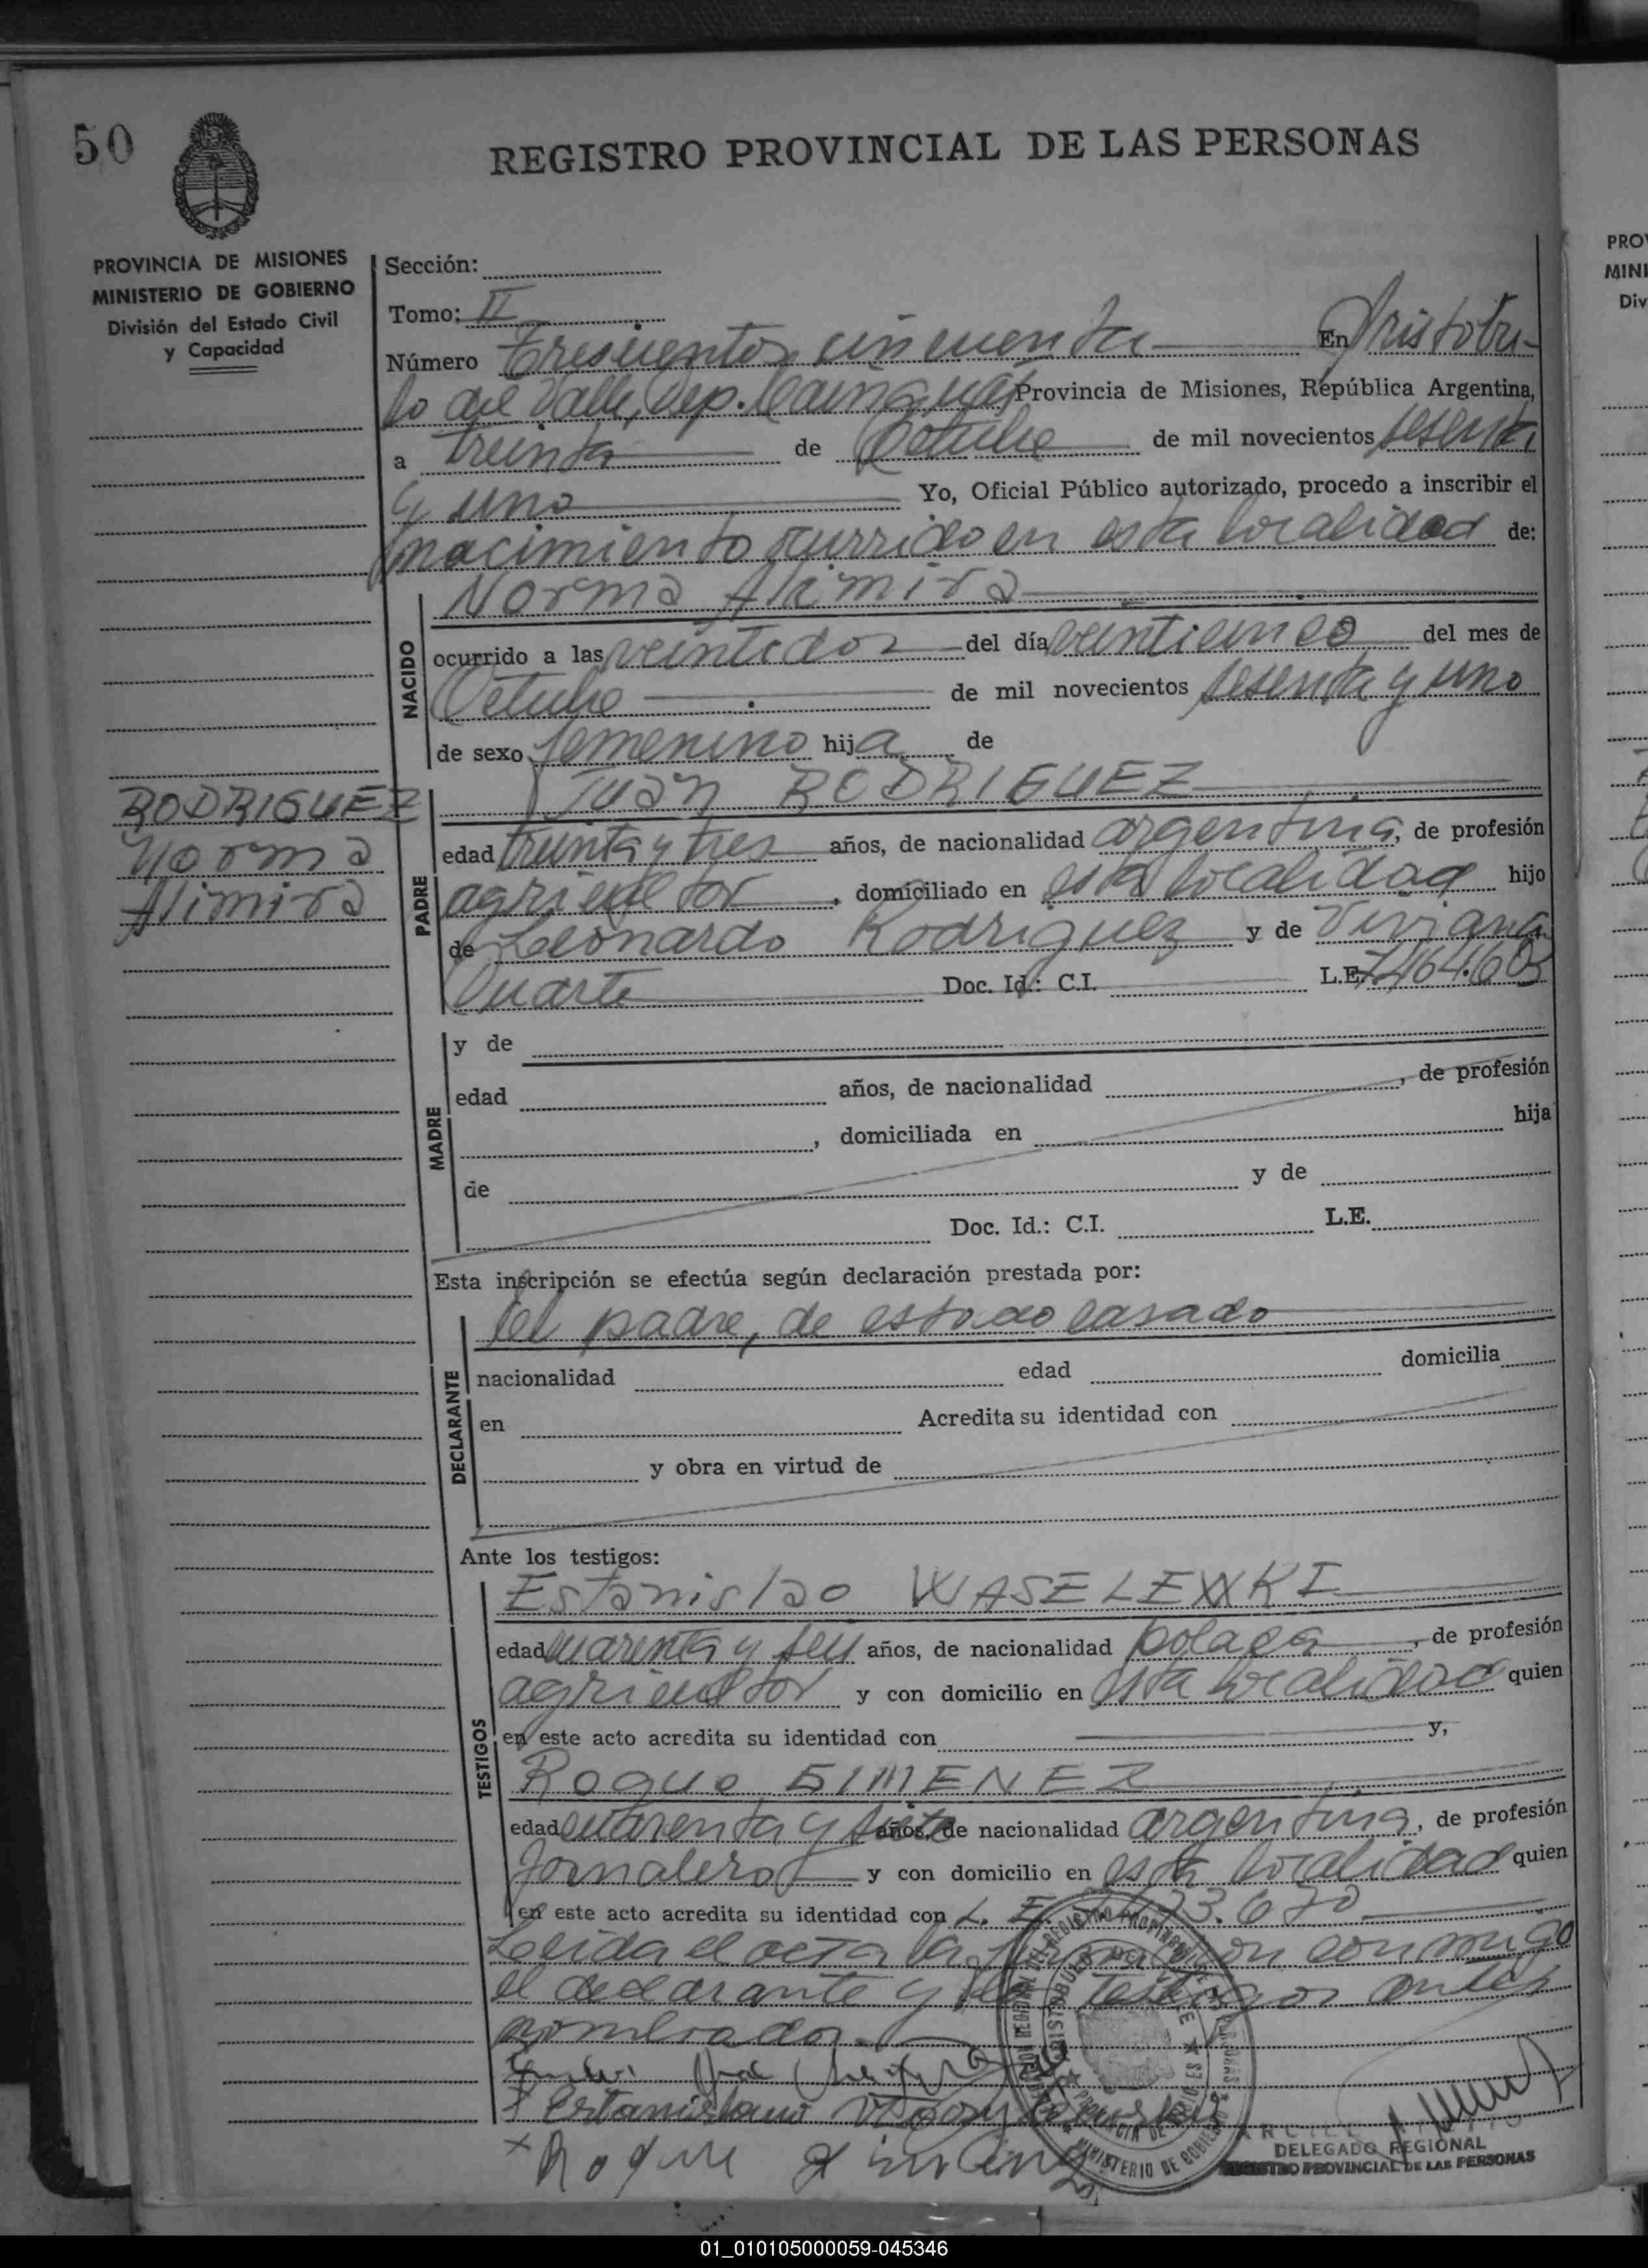 50
REGISTRO PROVINCIAL DE LAS PERSONAS
PROVINCIA DE MISIONES
MINISTERIO DE GOBIERNO
División del Estado Civil
y Capacidad
Sección:
Tomo: II
Número Trescientos cincuenta En Aristobu-
lo del Valle, Dep. Cainguás Provincia de Misiones, República Argentina,
a treinta de Octubre de mil novecientos sesenta
y uno Yo, Oficial Público autorizado, procedo a inscribir el
nacimiento ocurrido en esta localidad de:
Norma Alimira
NACIDO
ocurrido a las veintidos del día veinticinco del mes de
Octubre de mil novecientos sesenta y uno
de sexo femenino hija de
Juan RODRIGUEZ
RODRIGUEZ
Norma
Alimira
PADRE
edad treinta y tres años, de nacionalidad argentina, de profesión
agricultor, domiciliado en esta localidad hijo
de Leonardo Rodriguez y de Viviana
Duarte Doc. Id.: C.I. L.E. 7.464.603
MADRE
y de
edad años, de nacionalidad , de profesión
, domiciliada en hija
de y de
Doc. Id.: C.I. L.E.
Esta inscripción se efectúa según declaración prestada por:
DECLARANTE
del padre, de estado casado
nacionalidad edad domicilia
en Acredita su identidad con
y obra en virtud de
Ante los testigos:
TESTIGOS
Estanislao WASELEWKI
edad cuarenta y seis años, de nacionalidad polaca, de profesión
agricultor y con domicilio en esta localidad quien
en este acto acredita su identidad con y,
Roque GIMENEZ
edad cuarenta y siete años, de nacionalidad argentina, de profesión
Jornalero y con domicilio en esta localidad quien
en este acto acredita su identidad con L. E. 33.670
Leida el acta la firman con conmigo
el declarante y los testigos antes
nombrados.-
Estanislaus
x Roque Gimenez
DELEGADO REGIONAL
REGISTRO PROVINCIAL DE LAS PERSONAS
MINISTERIO DE GOBIERNO
PRO
MINI
Div
01_010105000059-045346